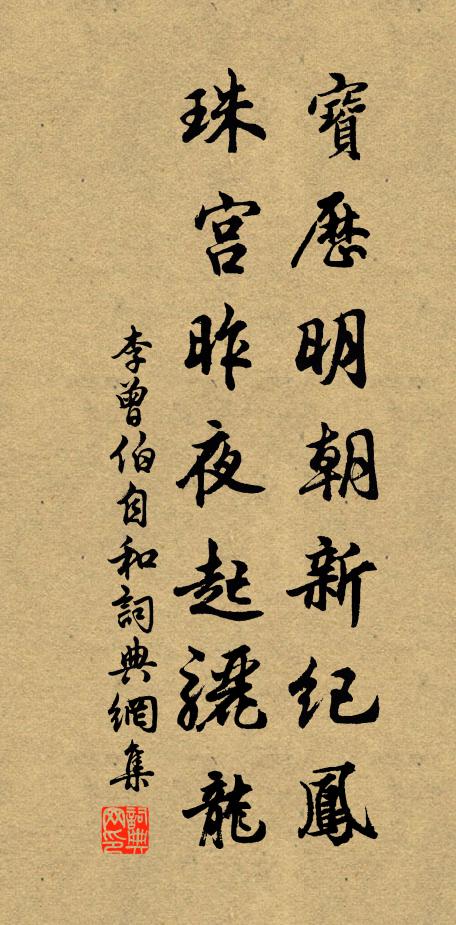 寶歷明朝新紀鳳
珠宮昨夜起驪龍
李曾伯自和詞典網集
詞典网印